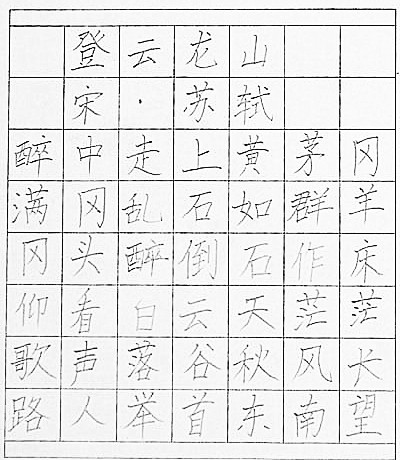 登云龙山
宋·苏轼
醉中走上黄茅冈
满冈乱石如群羊
冈头醉倒石作床
仰看白云天茫茫
歌声落谷秋风长
路人举首东南望